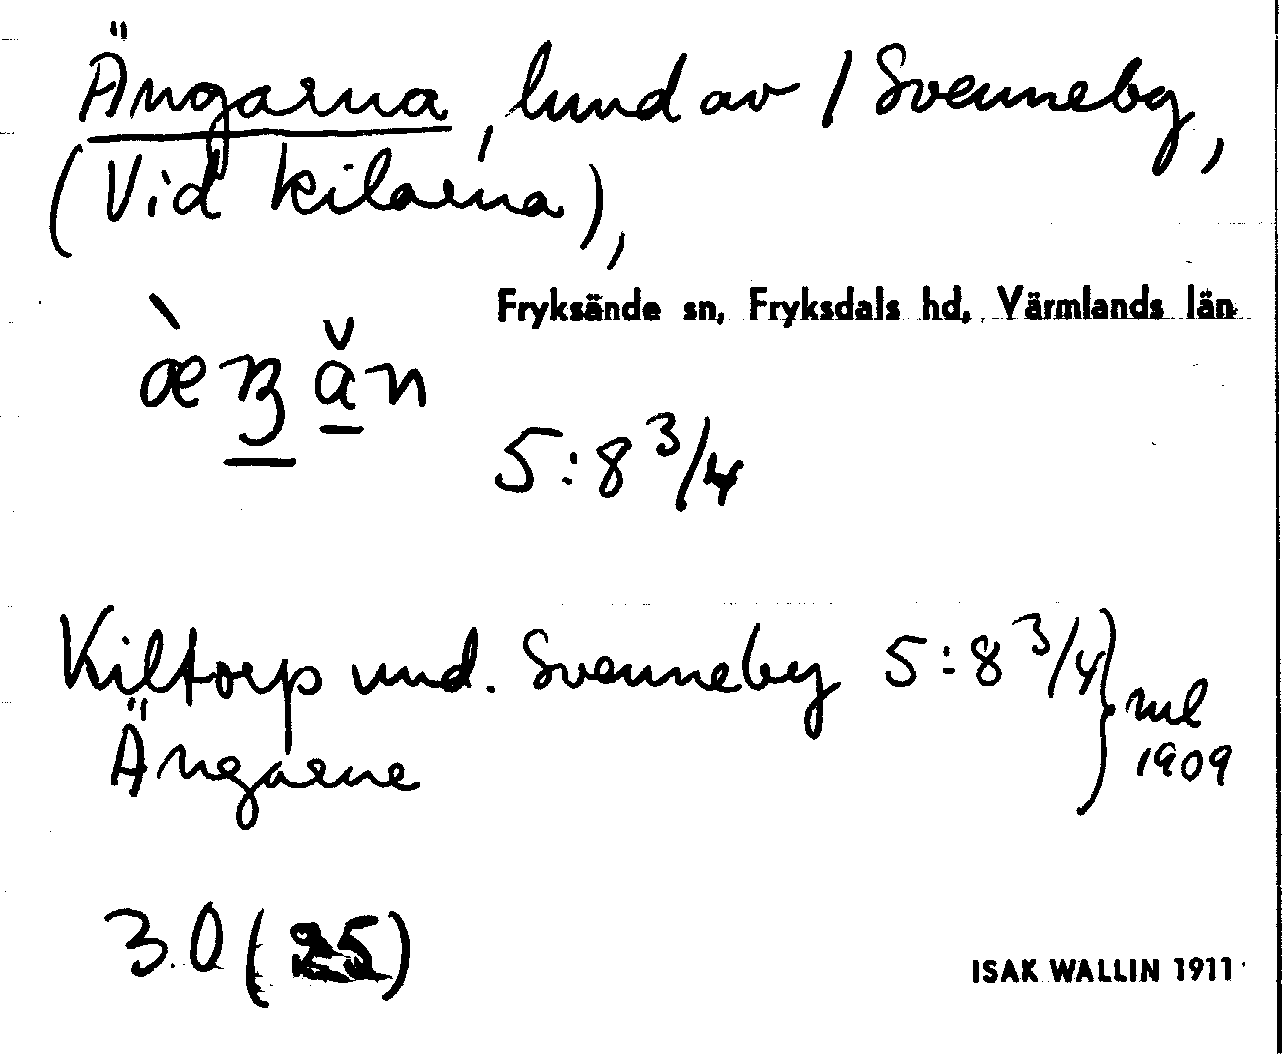 Ängarna, lund av / Svenneby,
(Vid kilarna),
Fryksände sn, Fryksdals hd, Värmlands län
5:8 3/4
Kiltorp und. Svenneby 5:8 3/4 } ml
Ängarne 1909
3.0 (25)
ISAK WALLIN 1911